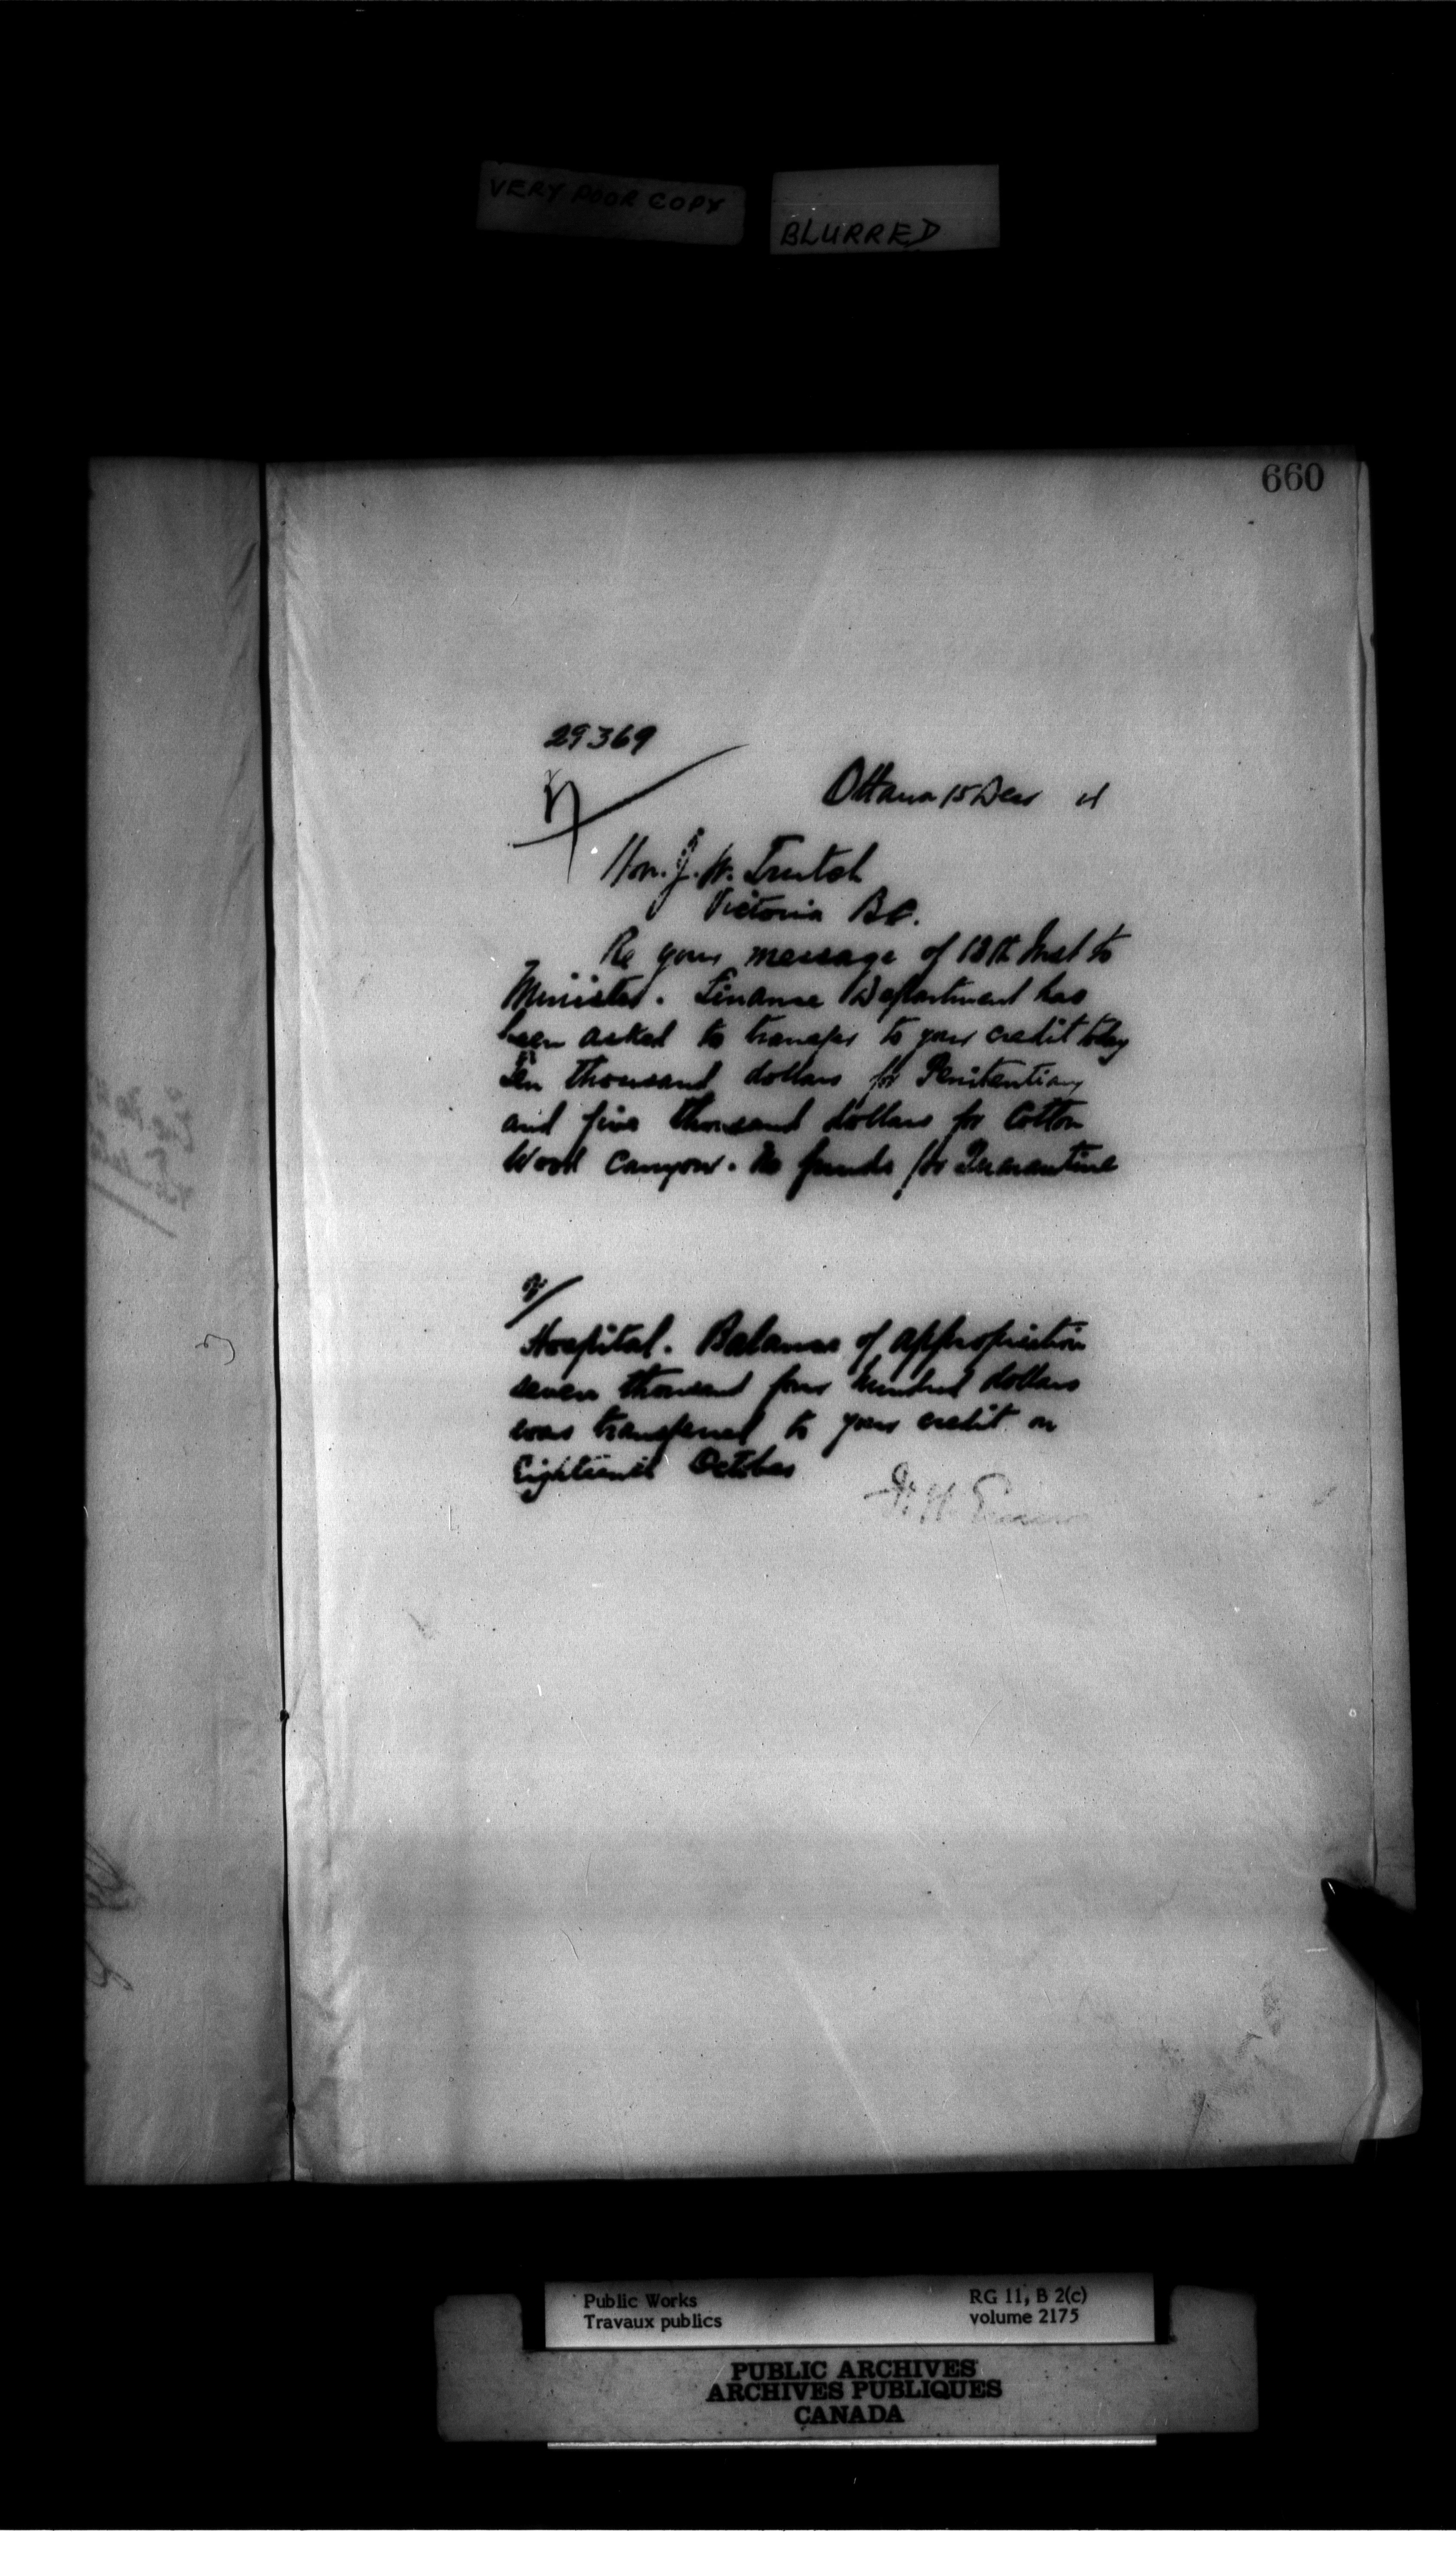 VERY POOR COPY
BLURRED
660
29369
Ottawa 15 Decr
Hon. J. W. Trutch
Victoria B.C.
Re your message of 13th Inst to
Minister. Finance Department has
been asked to transfer to your credit today
Ten thousand dollars for Penitentiary
and five thousand dollars for Cotton
Wood Canyon. No funds for Quarantine
Hospital. Balance of appropriation
seven thousand four hundred dollars
was transferred to your credit on
Eighteenth October
Public Works
Travaux publics
RG 11, B 2(c)
volume 2175
PUBLIC ARCHIVES
ARCHIVES PUBLIQUES
CANADA